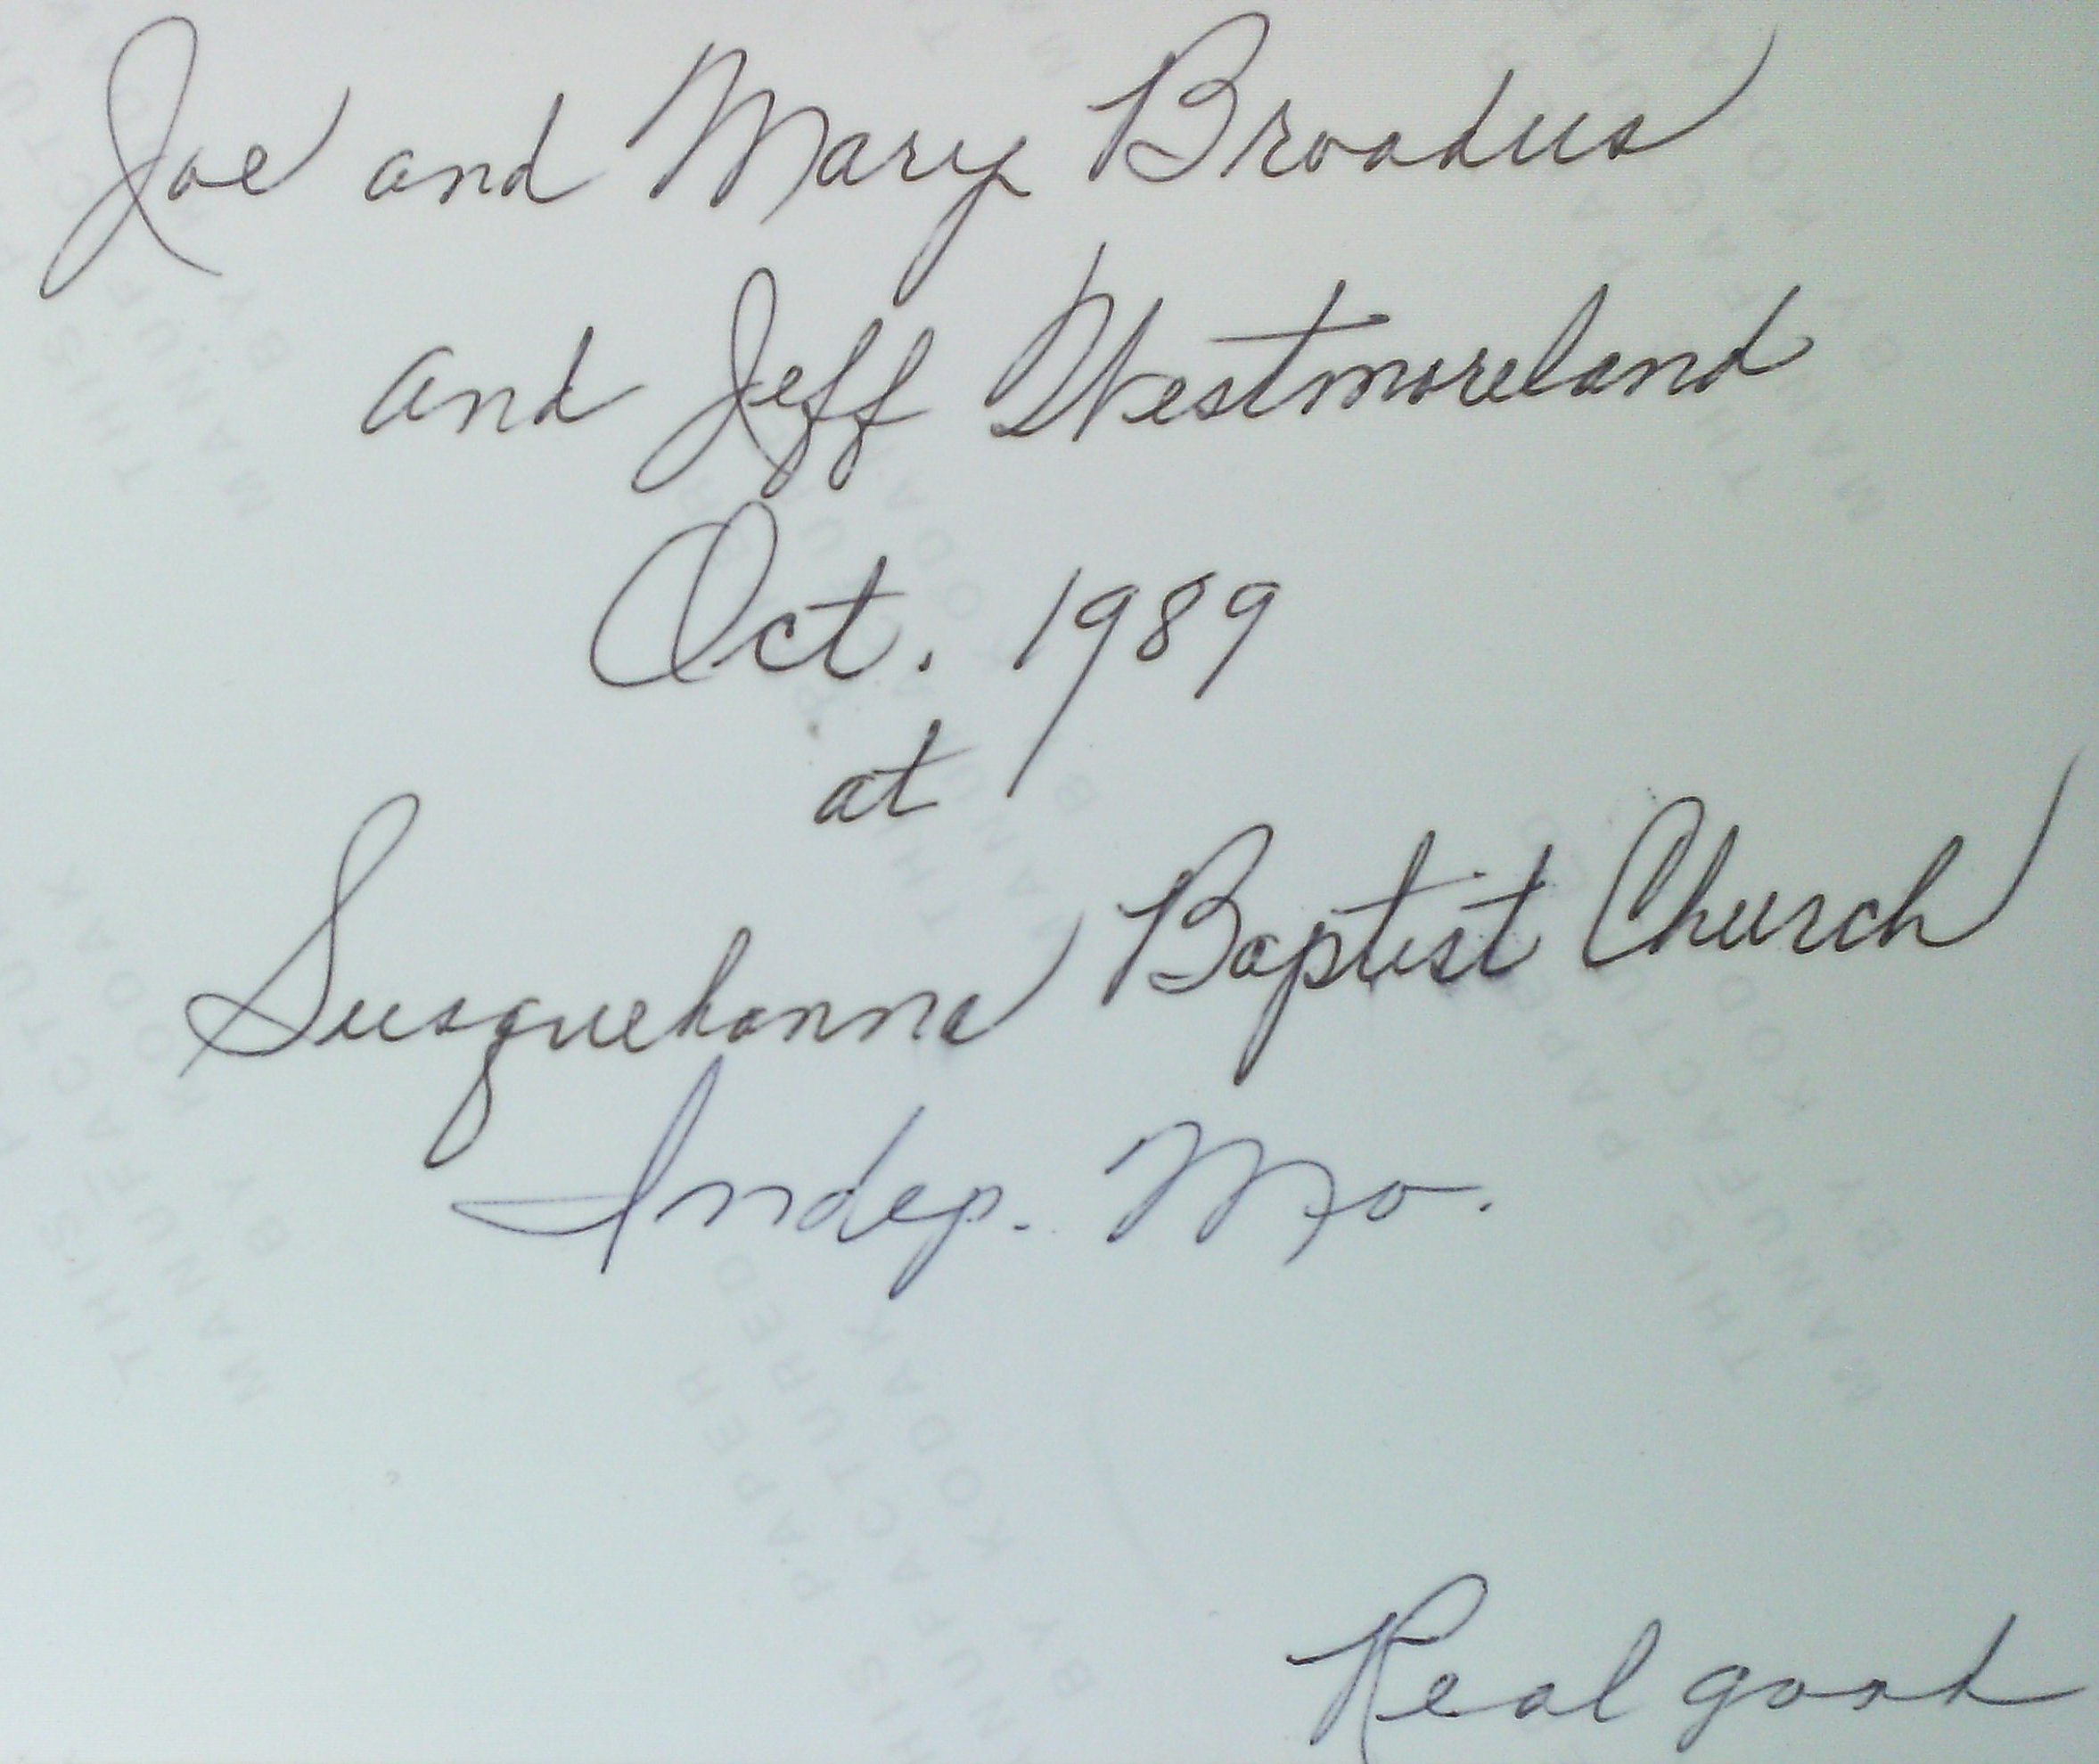 Joe and Mary Broadus
and Jeff Westmoreland
Oct. 1989
at
Susquehanna Baptist Church
Indep. Mo.
Real good
THIS PAPER
MANUFACTURED
BY KODAK